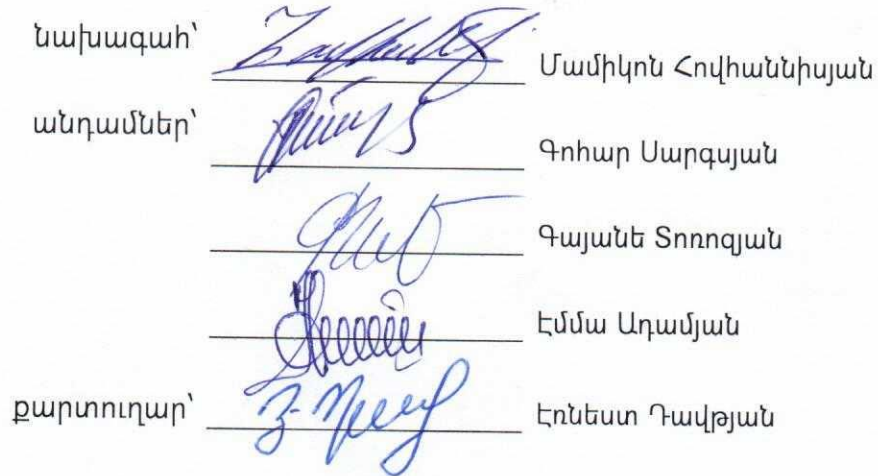 նախագահ՝ Մամիկոն Հովհաննիսյան
անդամներ՝ Գոհար Սարգսյան
Գայանե Տոռոզյան
Էմմա Ադամյան
քարտուղար՝ Էռնեստ Դավթյան